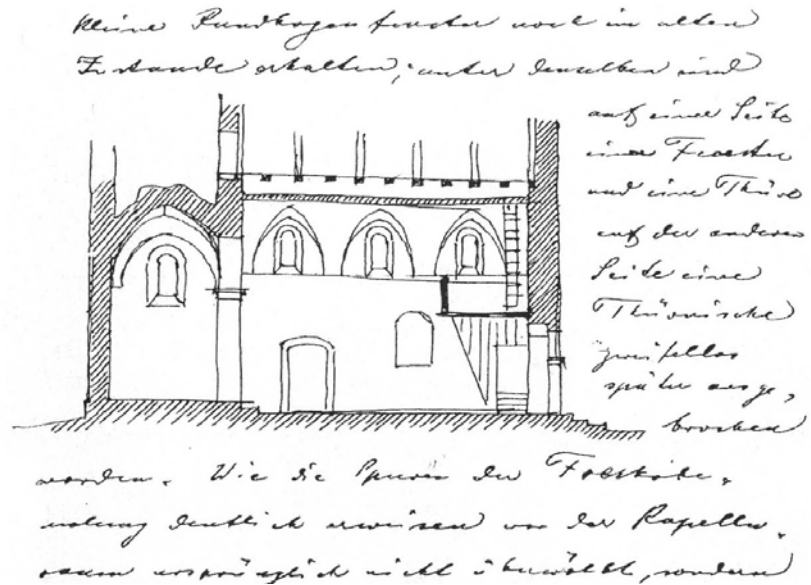 kleine Rundbogenfenster noch im alten
Zustande erhalten; unter denselben sind
auf einer Seite
einer Fenster
und eine Thüre
auf der anderen
Seite eine
Thürnische
zweifellos
später ausge-
brochen
worden. Wie die Spuren der
deutlich erweisen war der Kapellen-
raum ursprünglich nicht überwölbt, sondern